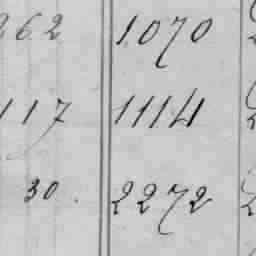 262 1070
117 1114
30. 2272